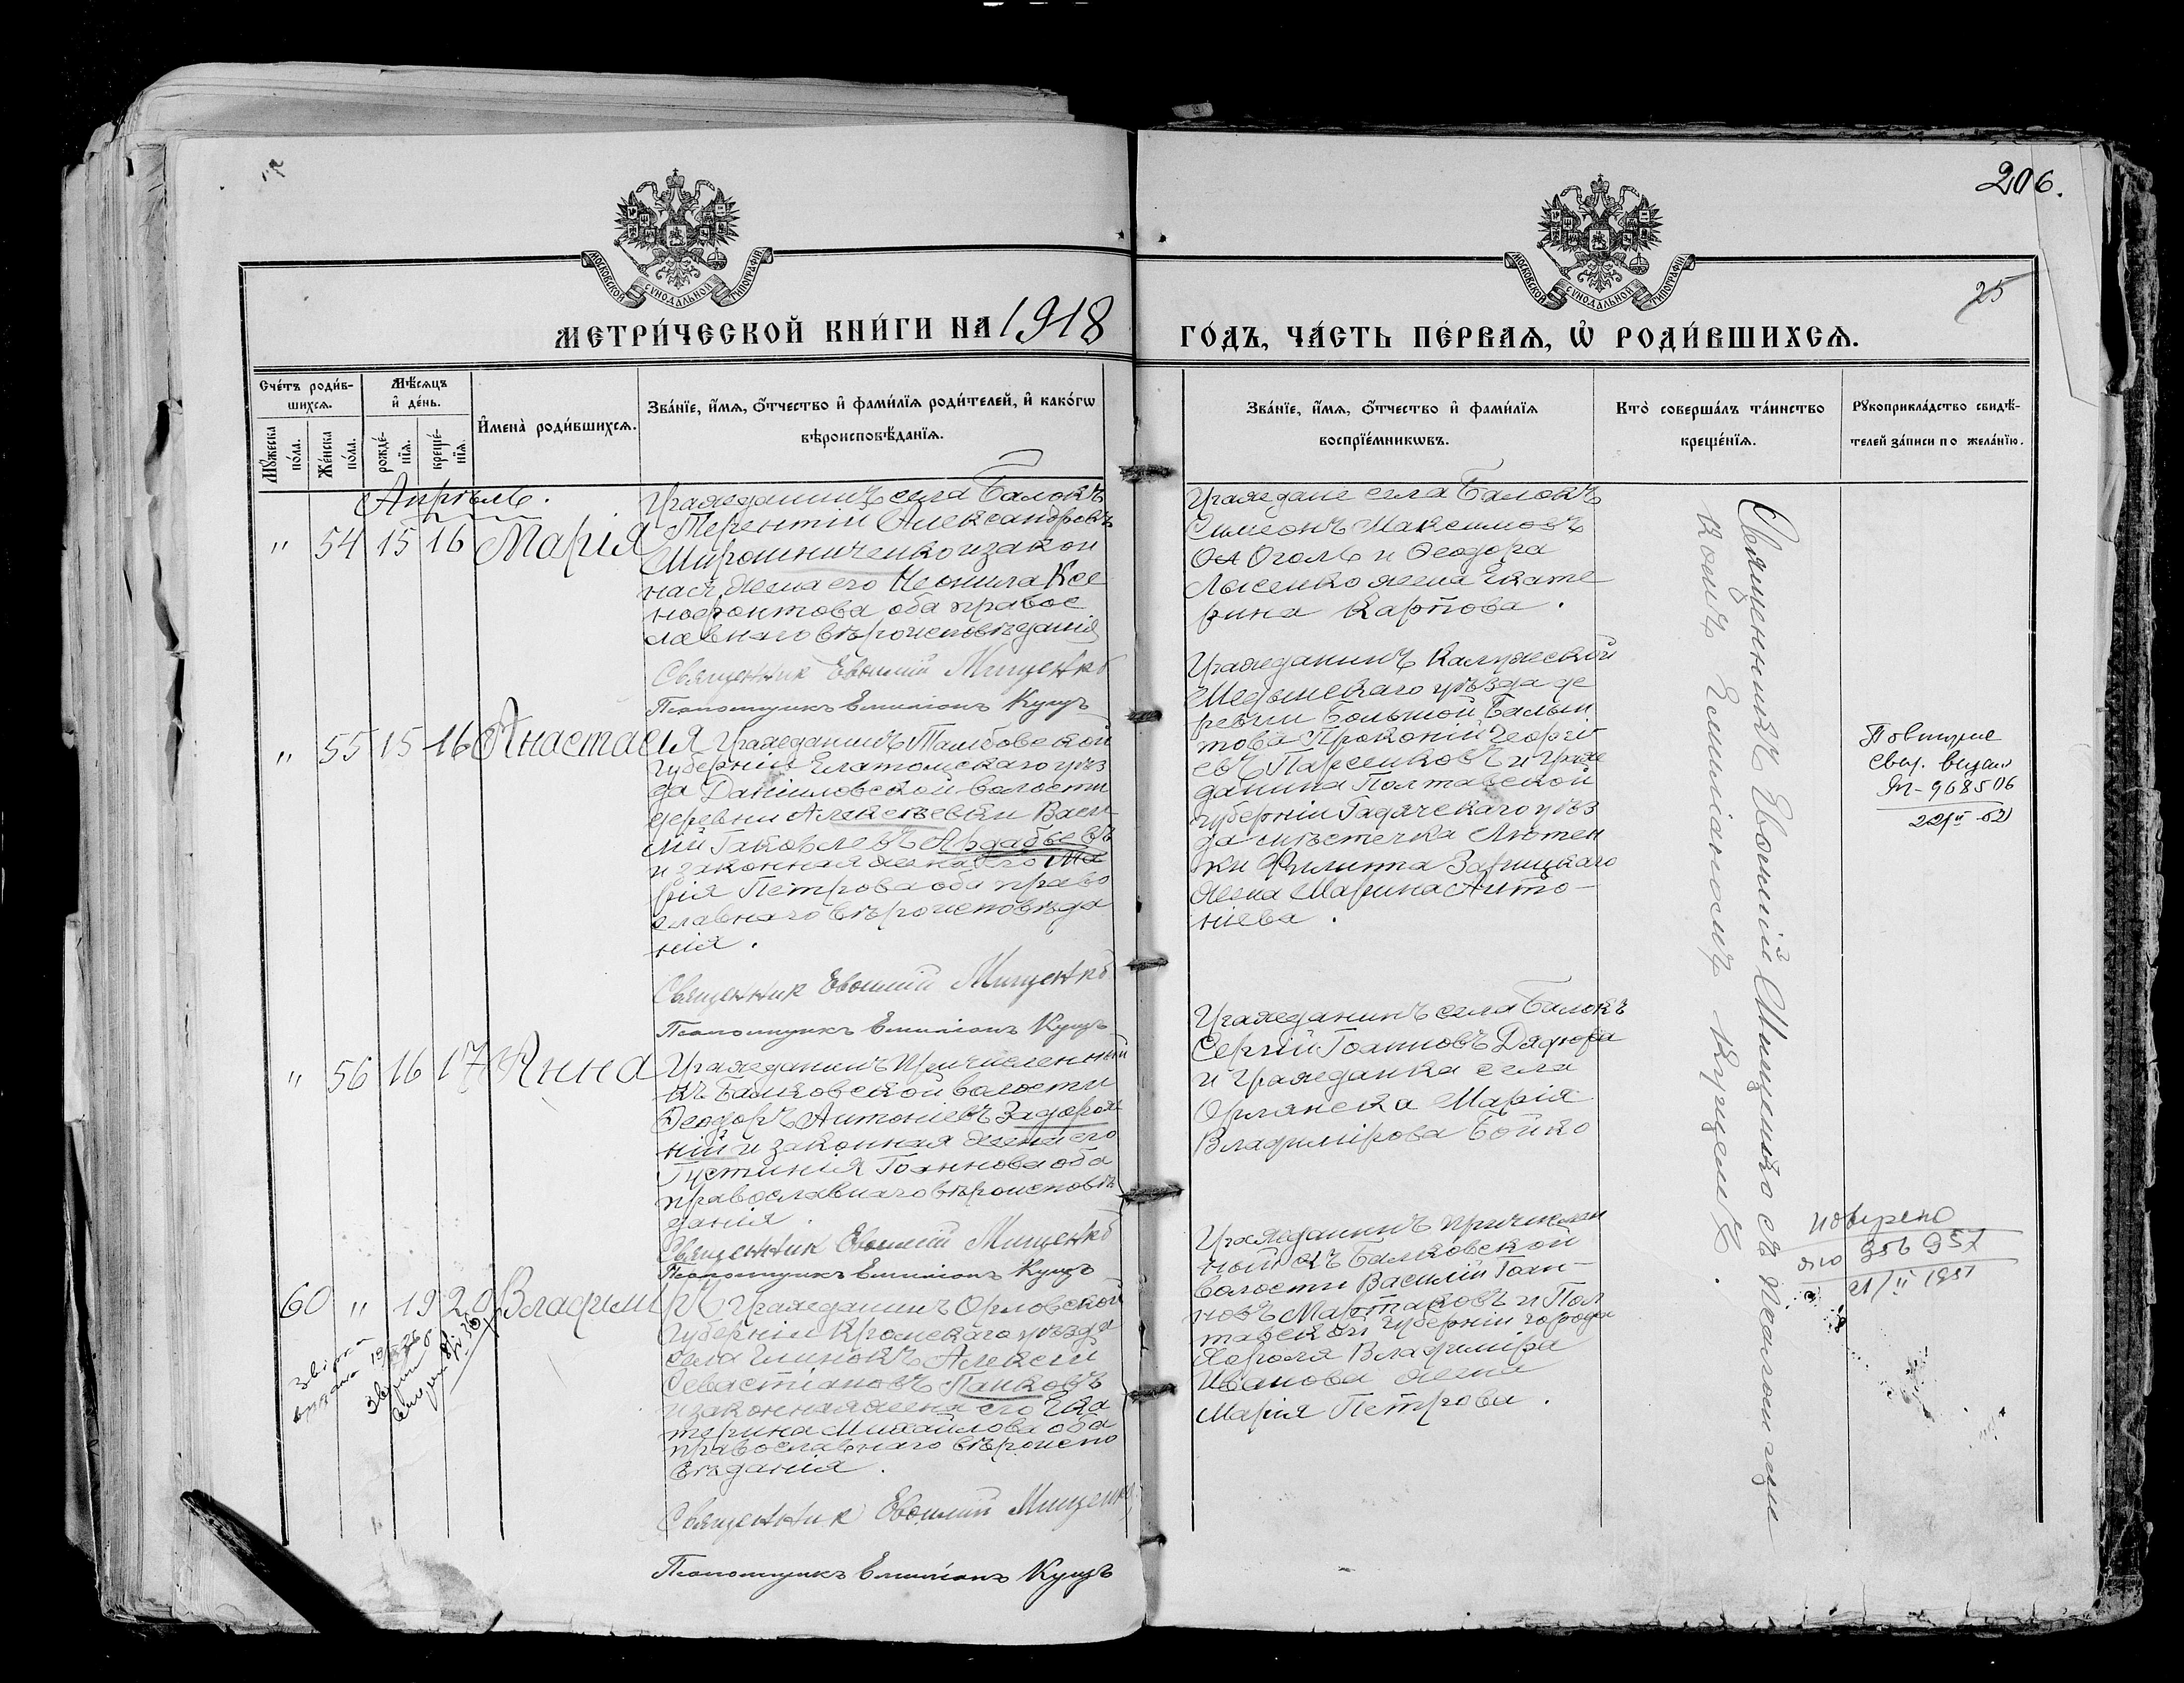 206.
25
МОСКОВСКОЙ СѴНОДАЛЬНОЙ ТИПОГРАФІИ
МОСКОВСКОЙ СѴНОДАЛЬНОЙ ТИПОГРАФІИ
МЕТРИ́ЧЕСКОЙ КНИ́ГИ НА 1918
ГО́ДЪ, ЧА́СТЬ ПЕ́РВАѦ, Ѡ҆ РОДИ́ВШИХСѦ.
Сче́тъ роди́в-
шихсѧ.
Мѣ́сѧцъ
и҆ де́нь.
И҆мена̀ роди́вшихсѧ.
Зва́нїе, и҆́мѧ, ѻ҆́тчество и҆ фами́лїѧ роди́телей, и҆ како́гѡ
вѣроисповѣ́данїѧ.
Мꙋ́жеска
по́ла.
Же́нска
по́ла.
рожде́-
нїѧ.
креще́-
нїѧ.
Зва́нїе, и҆́мѧ, ѻ҆́тчество и҆ фами́лїѧ
воспрїе́мникѡвъ.
Кто̀ соверша́лъ та́инство
креще́нїѧ.
Рꙋкоприкла́дство свидѣ́-
телей за́писи по жела́нїю.
Апрѣль.
" 54 15 16 Марія
Гражданинъ села Балокъ
Терентій Александровъ
Мирошниченко и закон
ная жена его Неонила Ксе
нофонтова оба правос
лавнаго вѣроисповѣданія
Священник Евѳимій Мищенко
Псаломщикъ Емиліанъ Куцъ
Граждане села Балокъ
Симеонъ Максимовъ
Оголь и Ѳеодора
Лысенко жена Екате
рина Карпова.
" 55 15 16 Анастасія
Гражданинъ Тамбовской
губерніи Елатомскаго уѣз
да Даниловской волости
деревни Алексѣевки Васи
лій Іаковлевъ Ардабьевъ
и законная жена его Ма
рія Петрова оба право
славнаго вѣроисповѣда
нія.
Священник Евѳимій Мищенко
Псаломщикъ Емиліанъ Куцъ
Гражданинъ Калужской
Медынскаго уѣзда де
ревни Большой
Прокопій Георгі
евъ Парсенковъ и граж
данина Полтавской
губерніи Гадячскаго уѣз
да мѣстечка Лютен
ки Филиппа Зарицкаго
жена Марина Анто-
ніева.
Повторне
свід. видано
968506
22/II-52
" 56 16 17 Анна
Гражданинъ Причисленный
къ Балковской волости
Ѳеодоръ Антоніевъ Задорож
ній и законная жена его
Іустинія Іоаннова оба
православнаго вѣроисповѣ
данія.
Священник Евѳимій Мищенко
Псаломщикъ Емиліанъ Куцъ
Гражданинъ села Балокъ
Сергій Іоанновъ Дядюра
и гражданка села
Орлянска Марія
Владимірова Бойко
60 " 19 20 Владиміръ
Гражданинъ Орловской
губерніи Кромскаго уѣзда
села Глинокъ Алексій
Севастіановъ Панковъ
и законная жена его Ека
терина Михайлова оба
православнаго вѣроиспо
вѣданія.
Священник Евѳимій Мищенко
Псаломщикъ Емиліанъ Куцъ
Гражданинъ причислен
ный къ Балковской
волости Василій Іоан-
новъ Мартаковъ и Пол
тавской губерніи города
Хороля Владиміра
Иванова жена
Марія Петрова.
356957
21/II 1951
Священникъ Евѳимій Мищенко съ псаломщи
комъ Емиліаномъ Куцемъ.